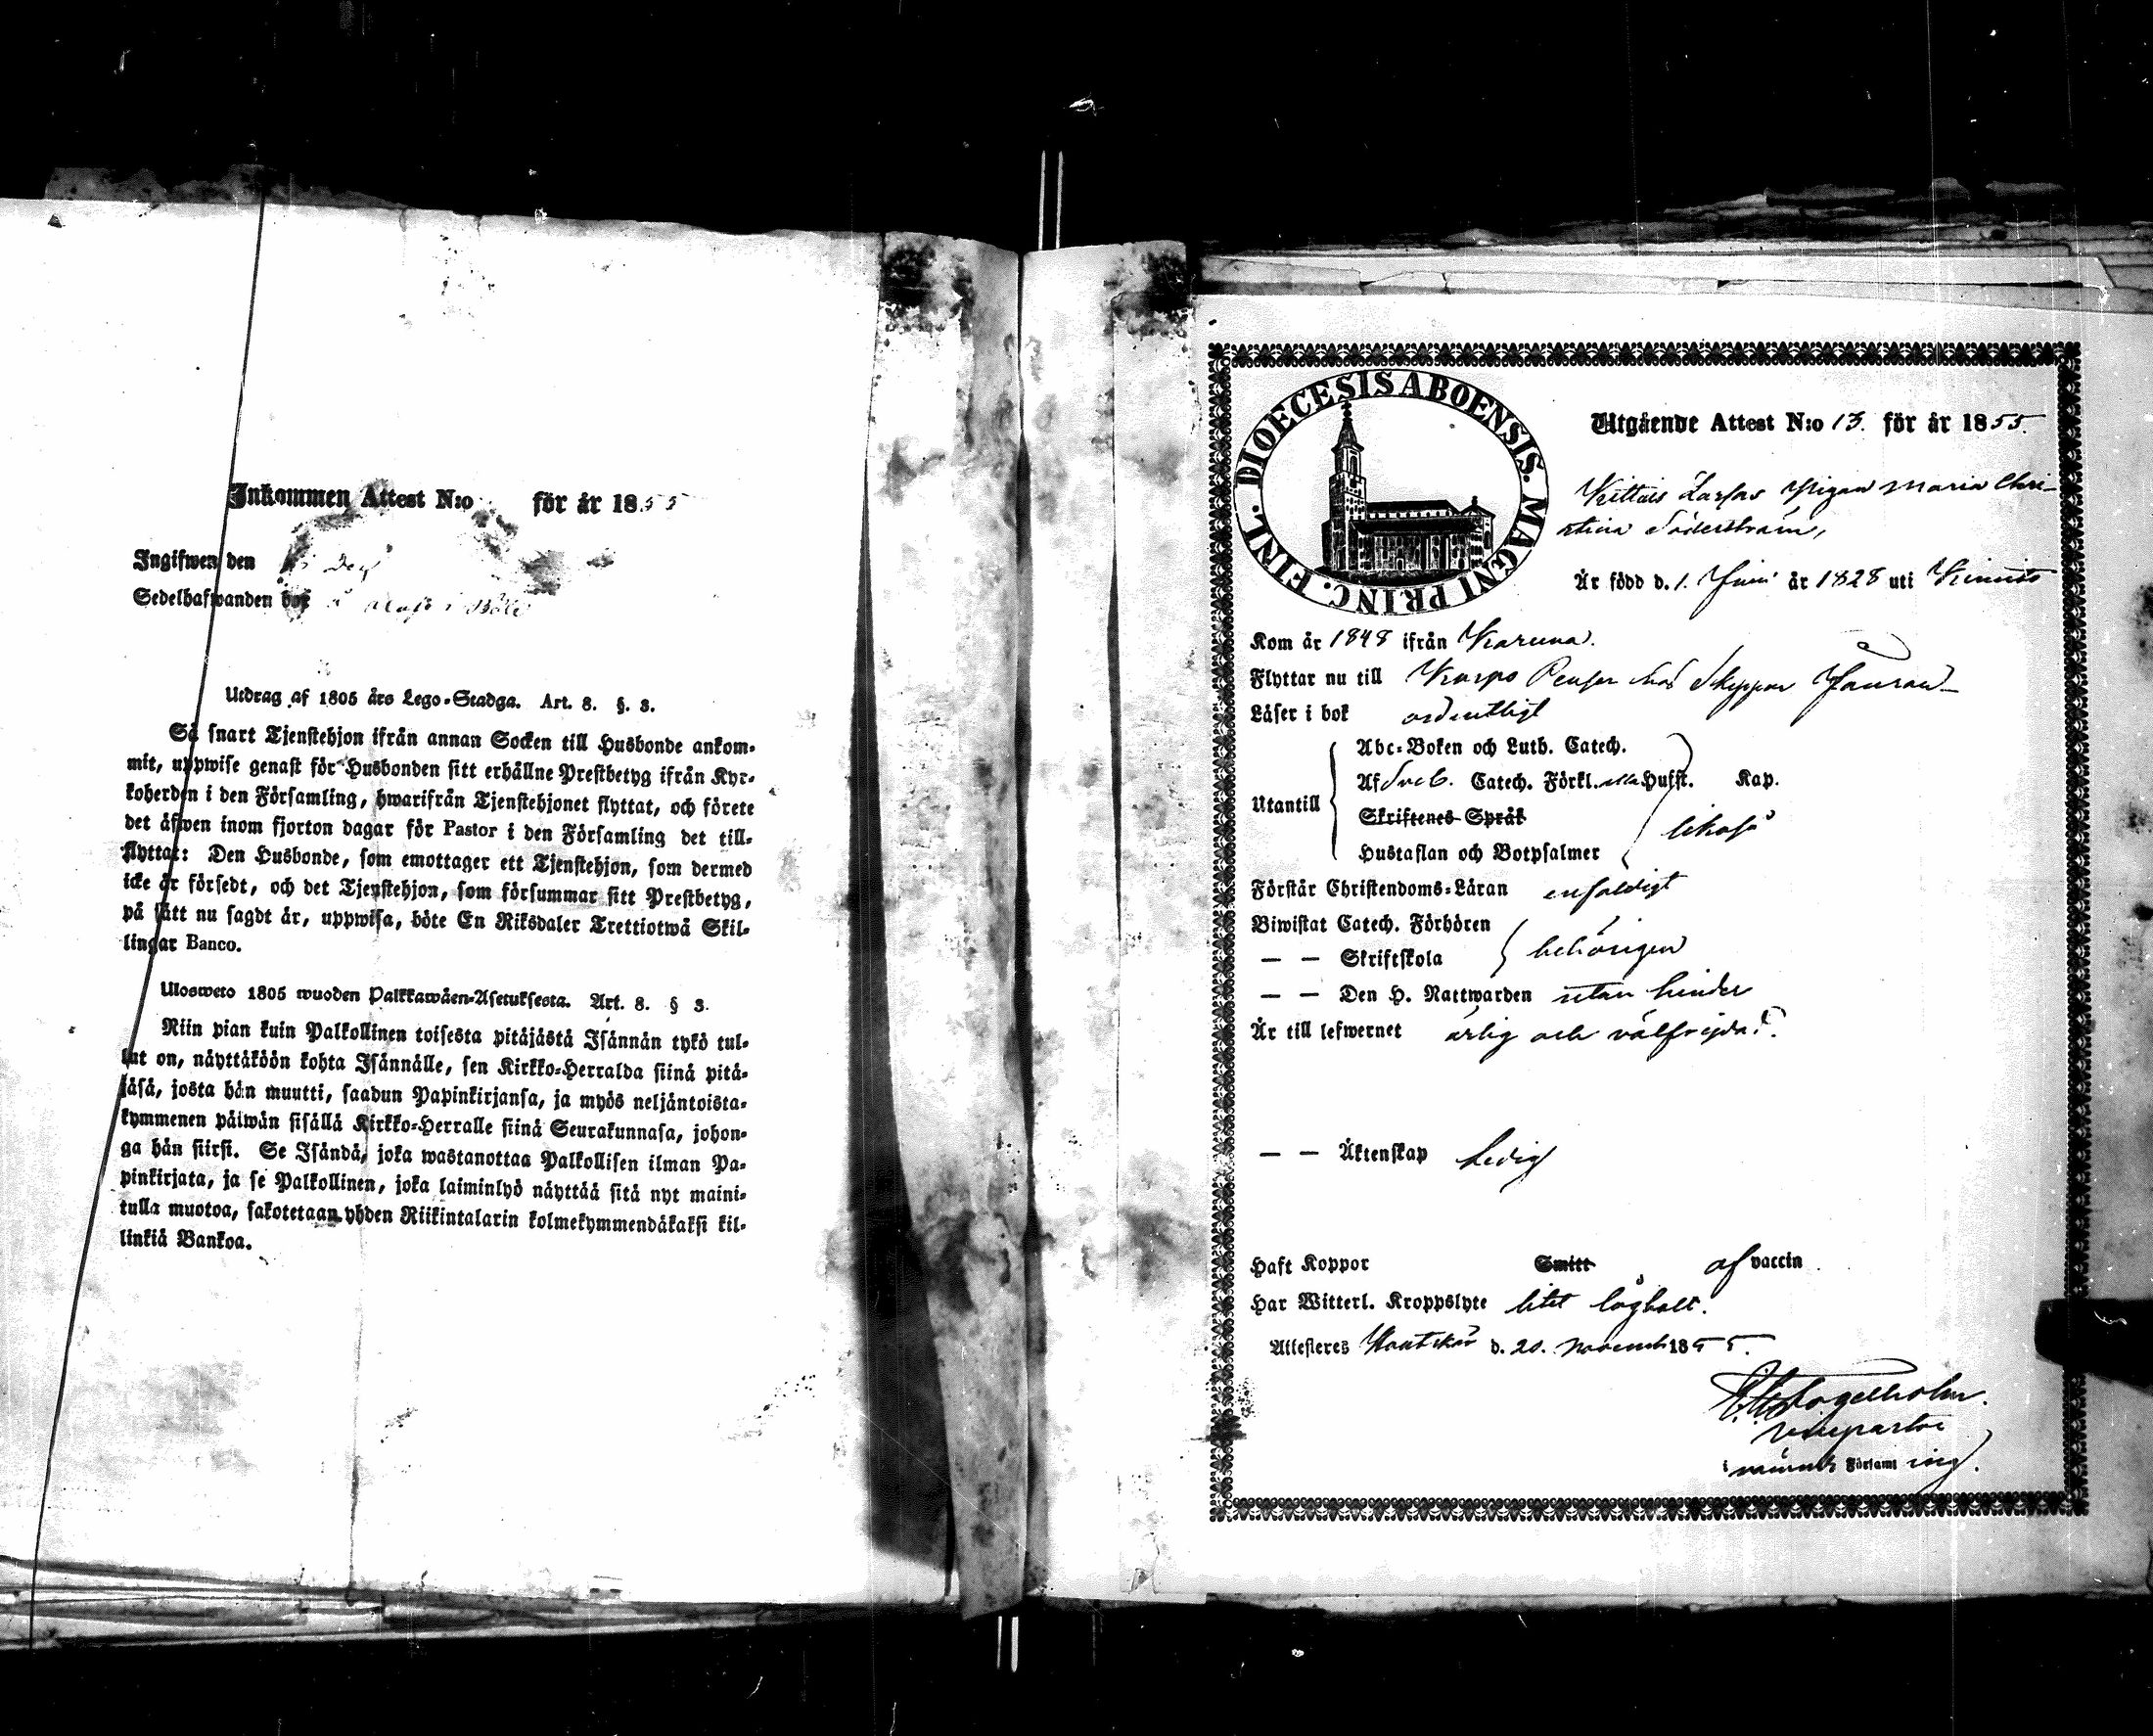 Inkommen Attest N:o för år 1855
Ingifwen den
Sedelhafwanden hos
Utdrag af 1805 års Lego-Stadga. Art. 8. §. 3.
Så snart Tjenstehjon ifrån annan Socken till Husbonde ankom-
mit, uppwise genast för Husbonden sitt erhållne Prestbetyg ifrån Kyr-
koherden i den Församling, hwarifrån Tjenstehjonet flyttat, och förete
det äfwen inom fjorton dagar för Pastor i den Församling det till-
flyttat: Den Husbonde, som emottager ett Tjenstehjon, som dermed
icke är försedt, och det Tjenstehjon, som försummar sitt Prestbetyg,
på sätt nu sagdt är, uppwisa, böte En Riksdaler Trettiotwå Skil-
lingar Banco.
Ulosweto 1805 wuoden Palkkawäen-Asetuksesta. Art. 8. § 3.
Niin pian kuin Palkollinen toisesta pitäjästä Isännän tykö tul-
lut on, näyttäköön kohta Isännälle, sen Kirkko-Herralda siinä pitä-
jäsä, josta hän muutti, saadun Papinkirjansa, ja myös neljäntoista-
kymmenen päiwän sisällä Kirkko-Herralle siinä Seurakunnasa, johon-
ga hän siirsi. Se Isändä, joka wastanottaa Palkollisen ilman Pa-
pinkirjata, ja se Palkollinen, joka laiminlyö näyttää sitä nyt maini-
tulla muotoa, sakotetaan yhden Riikintalarin kolmekymmendäkaksi kil-
linkiä Bankoa.
DIOECESIS ABOENSIS. MAGNI PRINC. FINL.
Utgående Attest N:o 13. för år 1855.
Larsas Pigan Maria Chri-
stina Söderström,
Är född d. 1. Juni år 1828 uti Kimito
Kom år 1848 ifrån Karuna.
Flyttar nu till Korpo hos Skeppar
Läser i bok ordentligt
Utantill
Abc-Boken och Luth. Catech.
Af Sveb. Catech. Förkl. Hufst. Kap.
Skriftenes Språk
Hustaflan och Botpsalmer
likaså
Förstår Christendoms-Läran enfaldigt
Biwistat Catech. Förhören
— — Skriftskola
behörigen
— — Den H. Nattwarden utan hinder
Är till lefwernet ärlig och välfrejdad.
— — Äktenskap ledig
Haft Koppor Smitt af vaccin
Har Witterl. Kroppslyte litet låghalt.
Attesteres Houtskär d. 20. November 1855.
Fogelholm.
Vicepastor
i nämnde Församling.